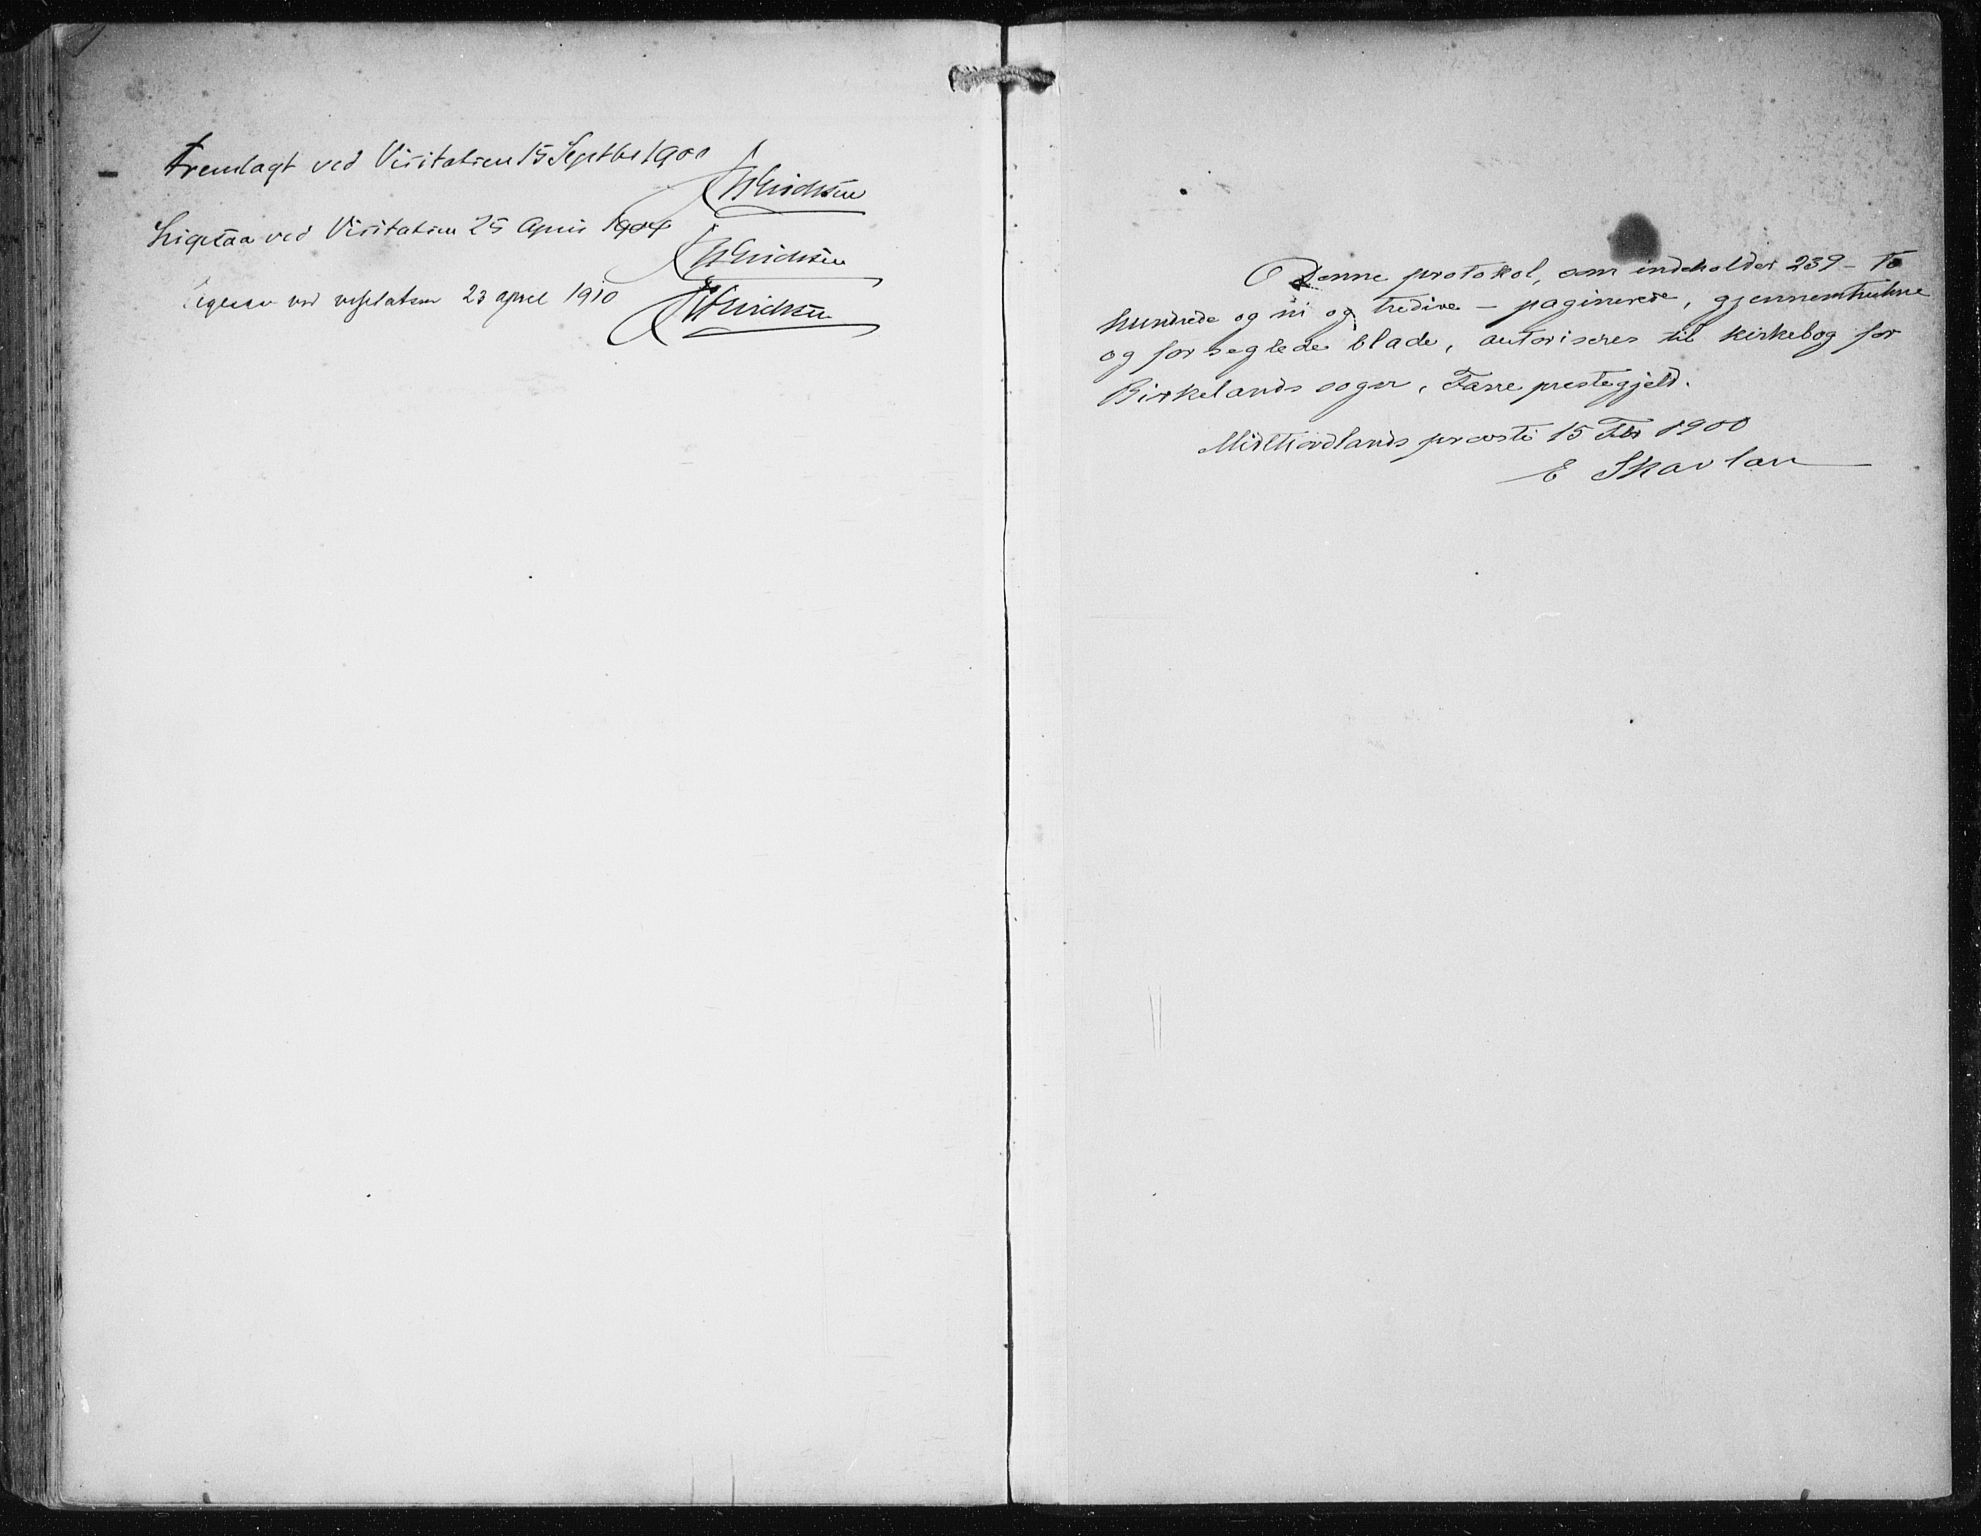 Fremlagt ved Visitatsen 15 Septbr 1900
Erichsen
Ligesaa ved Visitatsen 25 April 1904
Erichsen
Ligesaa ved visitatsen 23 april 1910
Erichsen
Denne protokol, som indeholder 239 - to
hundrede og ni og tredive - paginerede, gjennemtrukne
og forseglede blade, autoriseres til kirkebog for
Birkelands sogn, Fane prestegjeld.
Midthordlands provsti 15 Febr 1900
E Skavlan